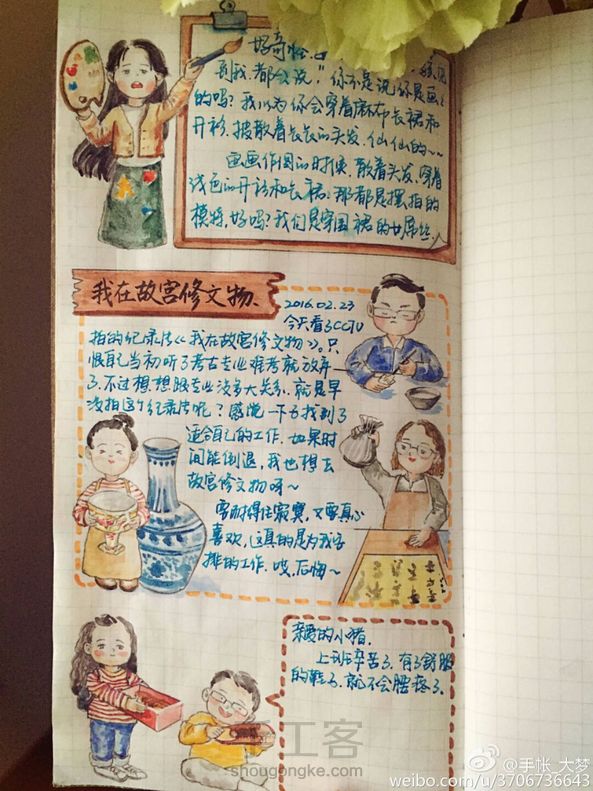 好奇怪
到我，都会说："你不是说你是画画
的吗？我以为你会穿着麻布长裙和
开衫，披散着长长的头发，仙仙的～～
画画作图的时候，散着头发、穿着
浅色的开衫和长裙、那都是摆拍的
模特，好吗？我们是穿围裙的女屌丝
我在故宫修文物、
2016.02.23
今天看了CCTV
拍的纪录片《我在故宫修文物》。只
恨自己当初听了考古专业难考就放弃
了、不过想想跟专业没多大关系、就是早
没拍这个纪录片呢？感慨一下为找到了
适合自己的工作、如果时
间能倒退，我也想去
故宫修文物呀～
要耐得住寂寞，又要真心
喜欢，这真的是为我安
排的工作、哎，后悔～
亲爱的小猪、
上班辛苦了、有了舒服
的鞋子、就不会腰疼了、
手工客
shougongke.com
@手帐_大梦
weibo.com/u/3706736643